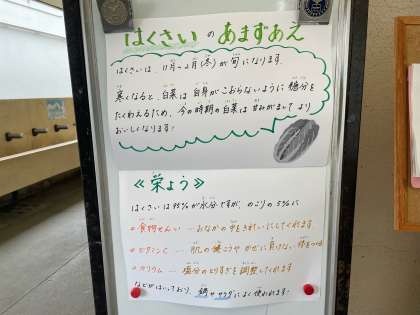 はくさい の あまずあえ
はくさいは、11月〜2月(冬)が旬になります。
寒くなると、白菜は自身がこおらないように糖分を
たくわえるため、今の時期の白菜は甘みがまして より
おいしくなります!
≪栄よう≫
はくさいは95%が水分ですが、のこりの5%に
食物せんい … おなかの中をきれいにしてくれます
ビタミンC … 肌の健こうや かぜに負けない体をつくる
カリウム … 塩分のとりすぎを調整してくれます
などがはいっており、鍋やサラダによく使われます。